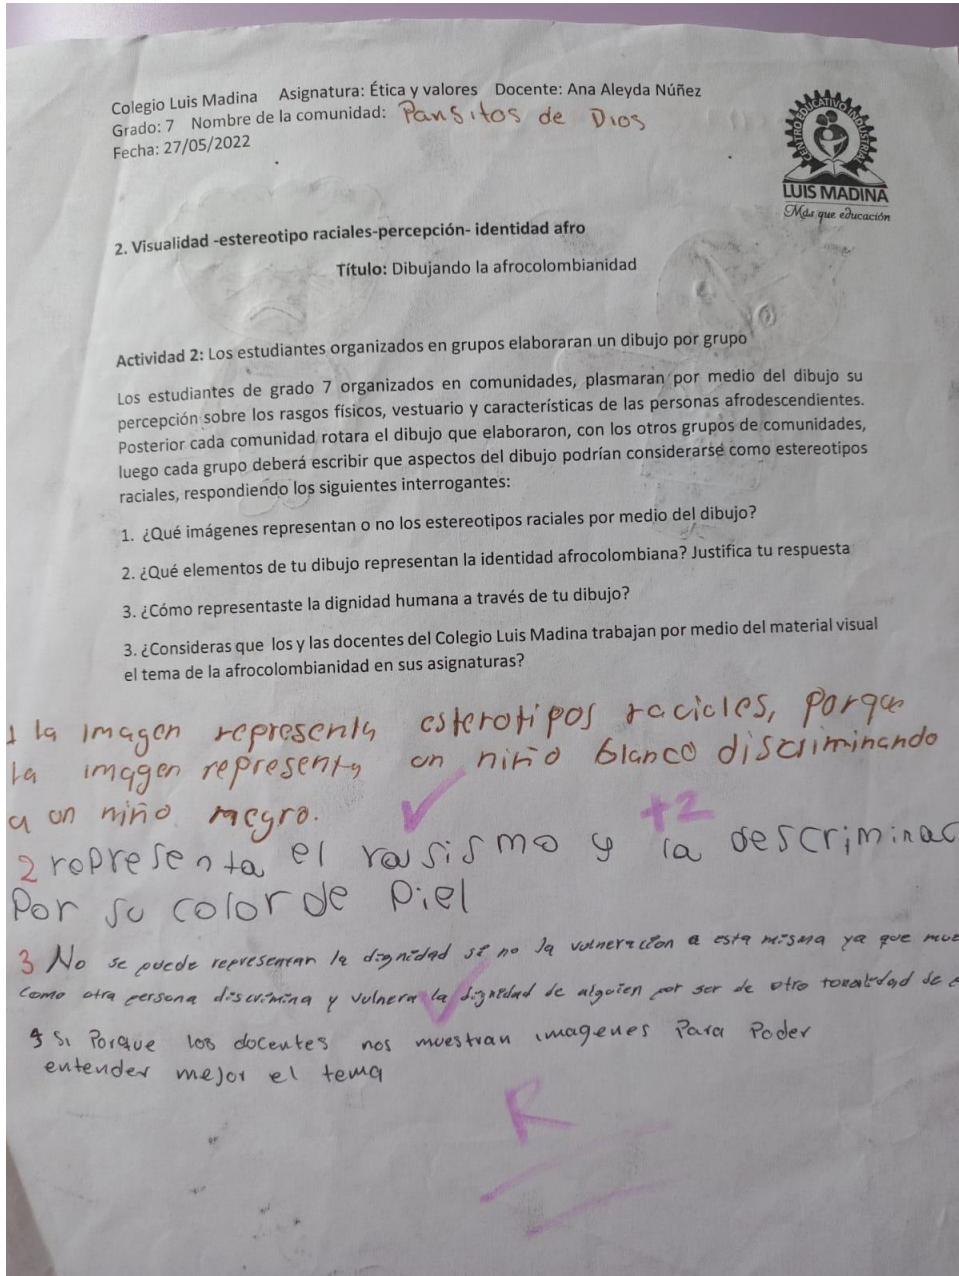 Colegio Luis Madina Asignatura: Ética y valores Docente: Ana Aleyda Núñez
Grado: 7 Nombre de la comunidad: Pansitos de Dios
Fecha: 27/05/2022
CENTRO EDUCATIVO INDUSTRIAL
LUIS MADINA
Más que educación
2. Visualidad -estereotipo raciales-percepción- identidad afro
Título: Dibujando la afrocolombianidad
Actividad 2: Los estudiantes organizados en grupos elaboraran un dibujo por grupo
Los estudiantes de grado 7 organizados en comunidades, plasmaran por medio del dibujo su
percepción sobre los rasgos físicos, vestuario y características de las personas afrodescendientes.
Posterior cada comunidad rotara el dibujo que elaboraron, con los otros grupos de comunidades,
luego cada grupo deberá escribir que aspectos del dibujo podrían considerarse como estereotipos
raciales, respondiendo los siguientes interrogantes:
1. ¿Qué imágenes representan o no los estereotipos raciales por medio del dibujo?
2. ¿Qué elementos de tu dibujo representan la identidad afrocolombiana? Justifica tu respuesta
3. ¿Cómo representaste la dignidad humana a través de tu dibujo?
3. ¿Consideras que los y las docentes del Colegio Luis Madina trabajan por medio del material visual
el tema de la afrocolombianidad en sus asignaturas?
1 la imagen representa esterotipos raciales, porque
la imagen representa un niño blanco discriminando
a un niño negro.
+2
2 representa el rasismo y la descriminac
Por su color de Piel
3 No se puede representar la dignidad si no la vulneracion a esta misma ya que mue
como otra persona discrimina y vulnera la dignidad de alguien por ser de otro tonalidad de
4 Si Porque los docentes nos muestran imagenes Para Poder
entender mejor el tema
R